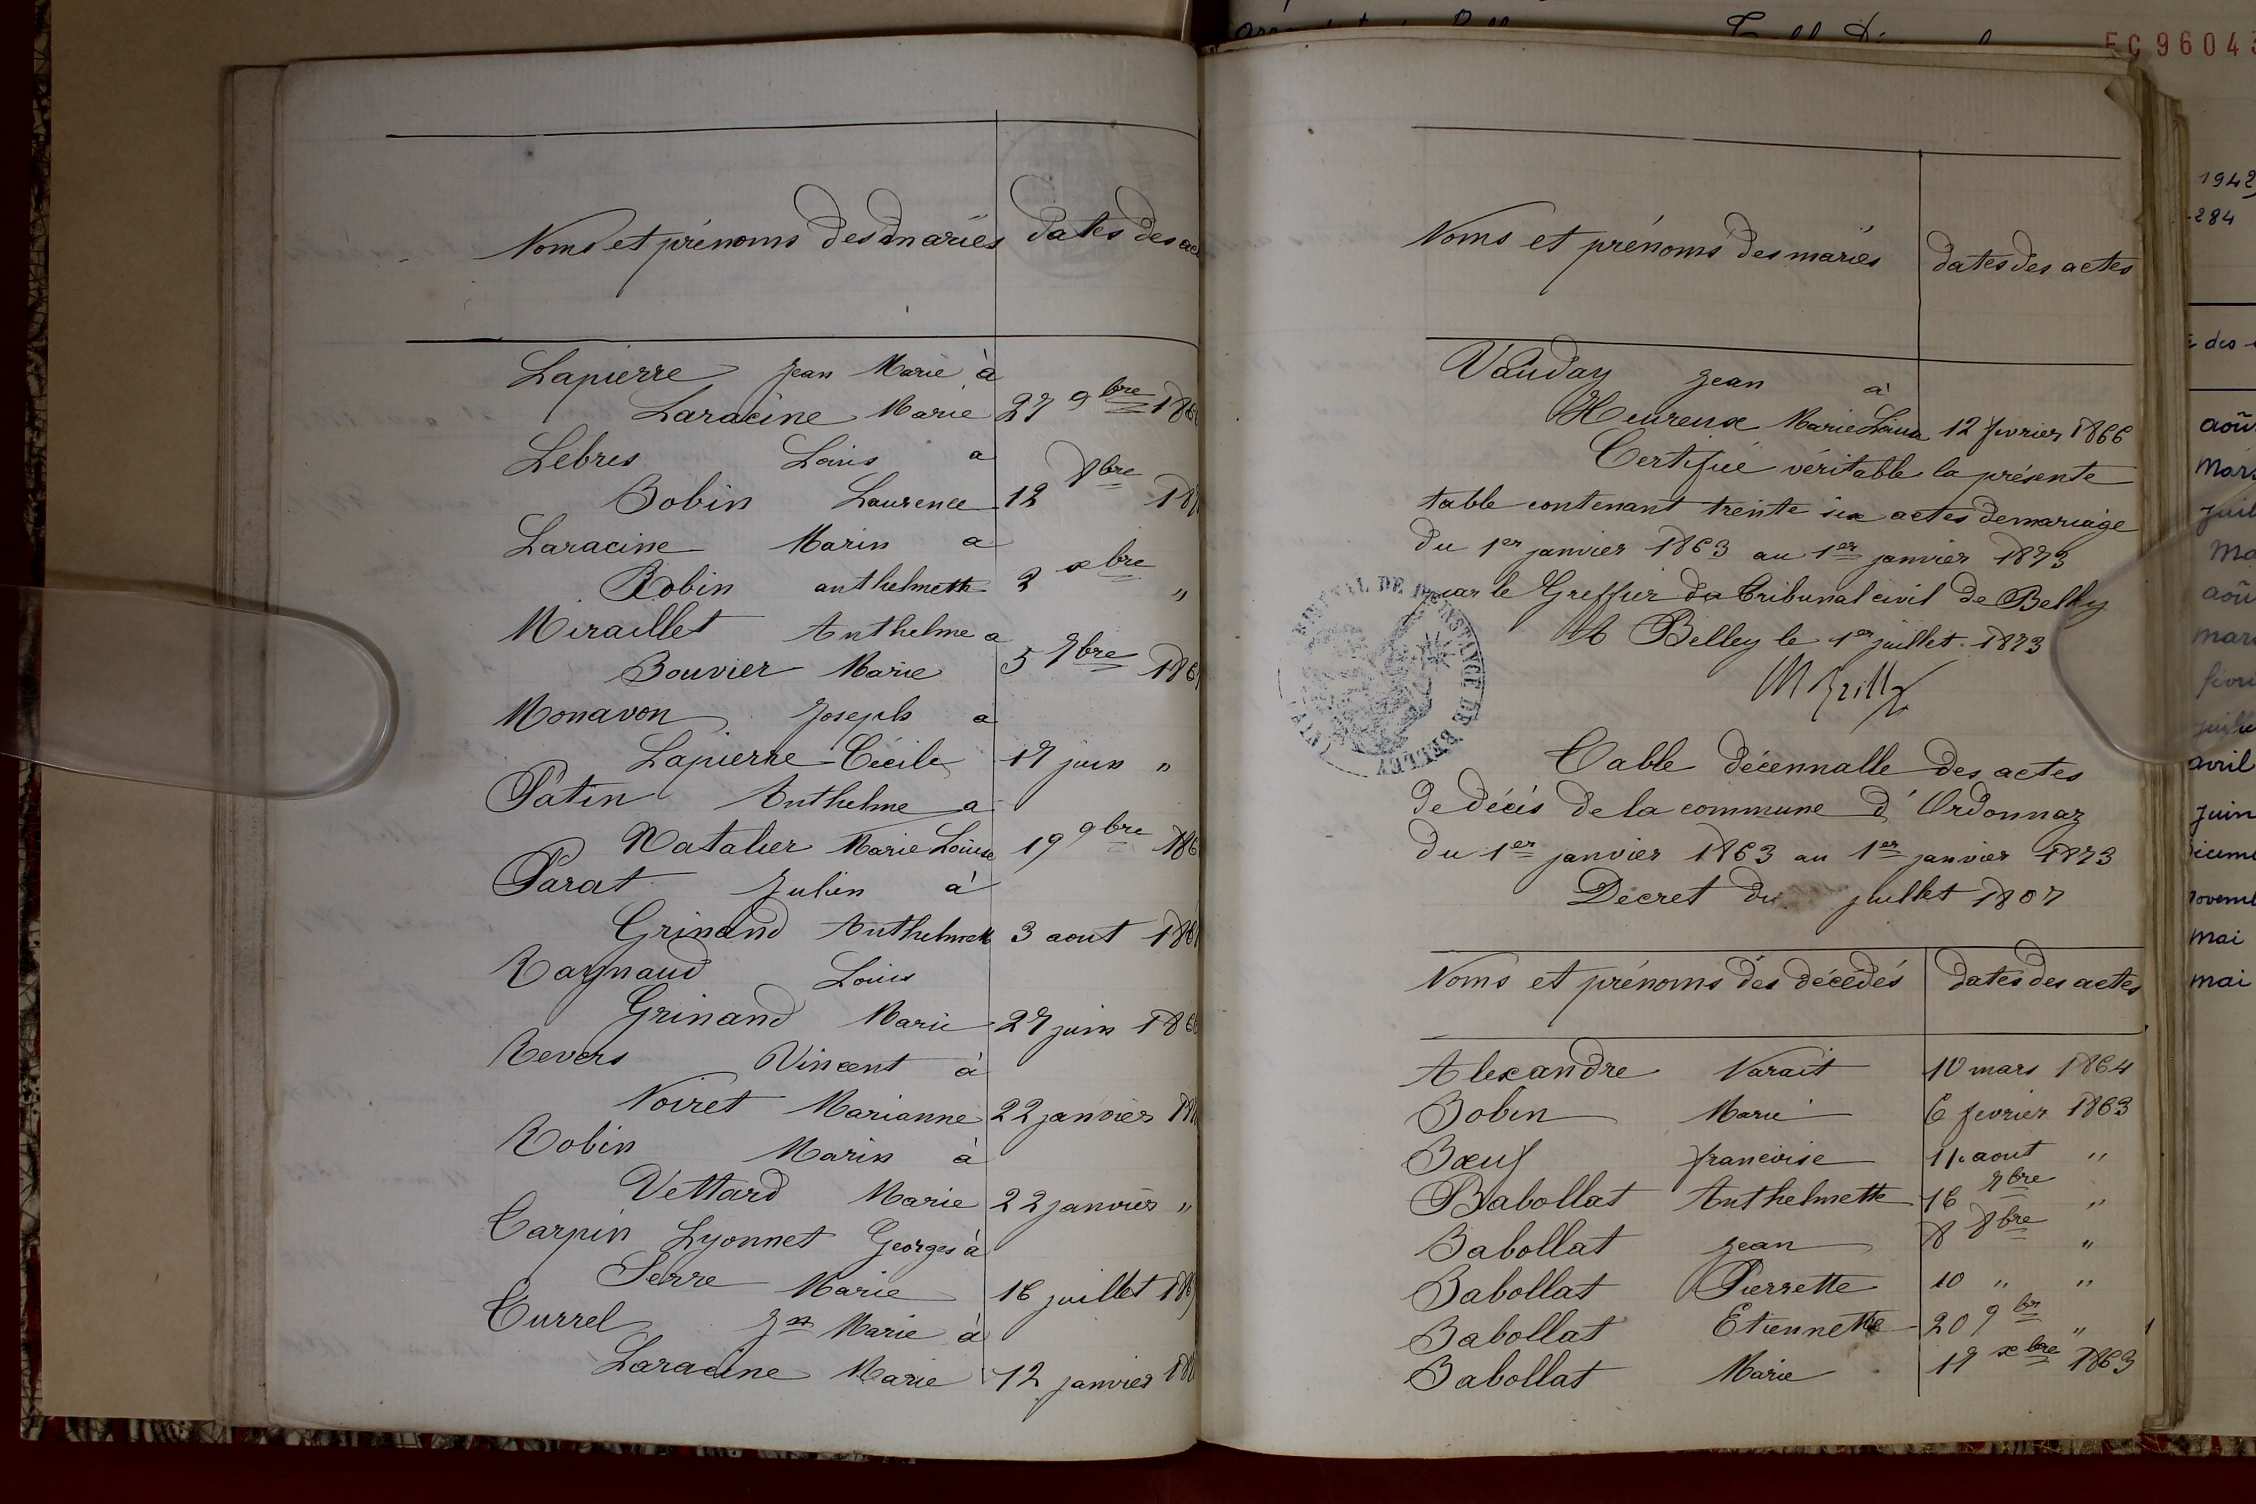 Noms et prénoms des mariés
dates des
Lapierre Jean Marie à
Laracine Marie 27 9bre
Lebres Louis a
Bobin Laurence 12 8bre
Laracine Marin a
Robin anthelmette 2 xbre "
Miraillet Anthelme a
Bouvier Marie 5 7bre
Monavon Joseph a
Lapierre Cécile 17 juin "
Patin Anthelme a
Natalier Marie Louise 19 9bre
Parat Julien à
Grinand Anthelmette 3 aout
Raynaud Louis
Grinand Marie 27 juin
Revers Vincent à
Noiret Marianne 22 janvier
Robin Marin à
Vettard Marie 22 janvier "
Carpin Lyonnet Georges à
Serre Marie 16 juillet
Currel Jn Marie à
Laracine Marie 12 janvier
Noms et prénoms des mariés
dates des actes
Vauday Jean à
Heureux Marie Louise 12 fevrier 1866
Certifié véritable la présente
table contenant trente six actes de mariage
du 1er janvier 1863 au 1er janvier 1873
par le Greffier du Tribunal civil de Belley
A Belley le 1er juillet 1873
Table décennalle des actes
de décès de la commune d'Ordonnaz
du 1er janvier 1863 au 1er janvier 1873
Décret du juillet 1807
Noms et prénoms des décédés
dates des actes
Alexandre Varait 10 mars 1864
Bobin Marie 6 fevrier 1863
Bœuf francoise 11 aout "
Babollat Anthelmette 16 7bre "
Babollat Jean 8 8bre "
Babollat Pierrette 10 " "
Babollat Etiennette 20 9br "
Babollat Marie 17 xbre 1863
DE 1re INSTANCE DE BELLEY
EC 96043
1942
284
des
aoû
Mars
juil
Ma
aoû
mar
févr
juille
avril
juin
mai
mai